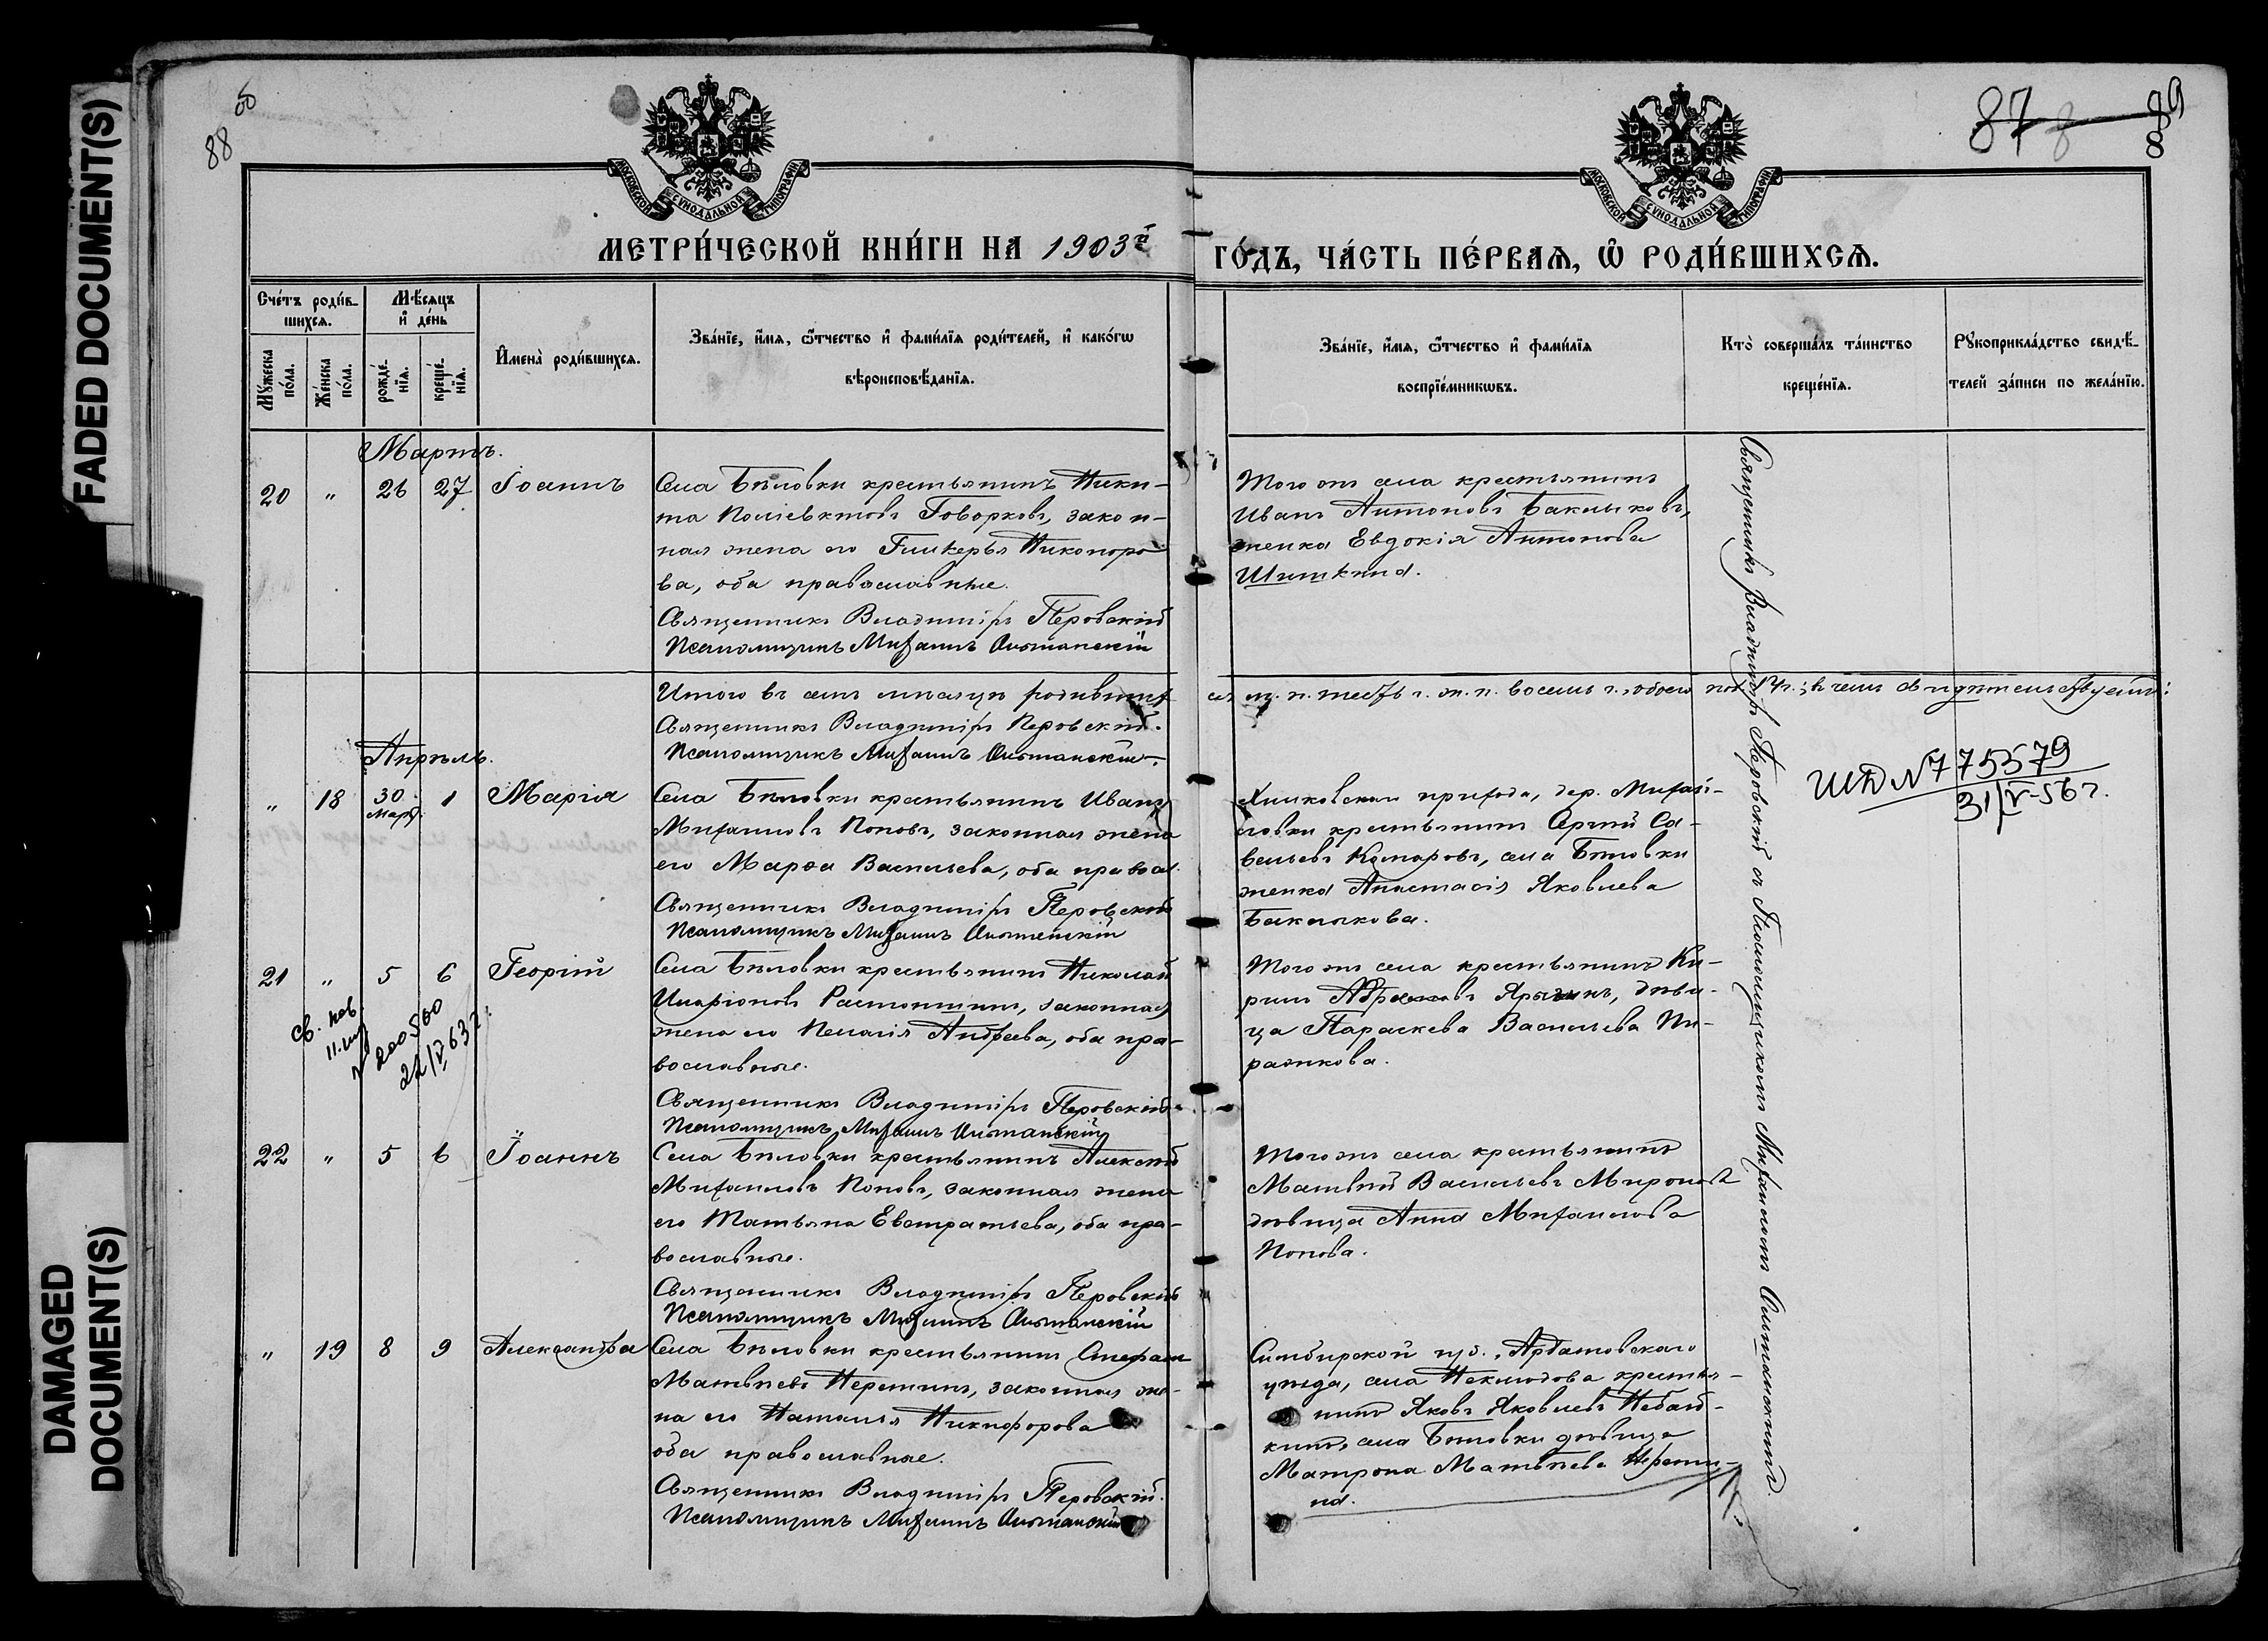 FADED DOCUMENT(S)
DAMAGED
DOCUMENT(S)
об
88
87 8 89
МОСКОВСКОЙ СѴНОДАЛЬНОЙ ТИПОГРАФІИ
МОСКОВСКОЙ СѴНОДАЛЬНОЙ ТИПОГРАФІИ
МЕТРИ́ЧЕСКОЙ КНИ́ГИ НА 1903й
ГО́ДЪ, ЧА́СТЬ ПЕ́РВАѦ, Ѡ҆ РОДИ́ВШИХСѦ.
Сче́тъ роди́в-
шихсѧ.
Мѣ́сѧцъ
и҆ де́нь
Мꙋ́жеска
по́ла.
Же́нска
по́ла.
рожде́-
нїѧ.
креще́-
нїѧ.
И҆мена̀ роди́вшихсѧ.
Зва́нїе, и҆́мѧ, ѻ҆́тчество и҆ фами́лїѧ роди́телей, и҆ како́гѡ
вѣроисповѣ́данїѧ.
Зва́нїе, и҆́мѧ, ѻ҆́тчество и҆ фами́лїѧ
воспрїе́мникѡвъ.
Кто̀ соверша́лъ та́инство
креще́нїѧ.
Рꙋкоприкла́дство свидѣ́-
телей за́писи по жела́нїю.
Мартъ.
20 " 26 27 Іоаннъ
Села Бѣловки крестьянинъ Ники-
та Поліевктовъ Говорковъ, закон-
ная жена его Гликерія Никоноро
ва, оба православные.
Священникъ Владиміръ Перовскій
Псаломщикъ Михаилъ
Того же села крестьянинъ
Иванъ Антоновъ Баклыковъ,
женка Евдокія Антонова
Шиткина.
Итого въ семъ мѣсяцѣ родивших
ся м. п. шесть ч. ж. п. восемь ч., обоего пола 14ч.; въ чемъ свидѣтельствуемъ:
Священникъ Владиміръ Перовскій.
Псаломщикъ Михаилъ
Апрѣль.
" 18 30 Март. 1 Марія
Села Бѣловки крестьянинъ Иванъ
Михаиловъ Поповъ, законная жена
его Марѳа Васильева, оба правосл.
Священникъ Владиміръ Перовскій
Псаломщикъ Михаилъ
прихода, дер. Михай-
ловки крестьянинъ Сергѣй Са-
вельевъ Комаровъ, села Бѣловки
женка Анастасія Яковлева
Баклыкова.
№ 775579
31/V-56 г.
21 " 5 6 Георгій
Села Бѣловки крестьянинъ Николай
Иларіоновъ Растопшинъ, законная
жена его Пелагія Андреева, оба пра-
вославные.
Священникъ Владиміръ Перовскій
Псаломщикъ Михаилъ
Того же села крестьянинъ Ки-
рилъ Абрамовъ Ярыгинъ, дѣви-
ца Параскева Васильева Пи-
ражкова.
Св. пов.
№ 200500
22/V 63 г.
22 " 5 6 Іоаннъ
Села Бѣловки крестьянинъ Алексѣй
Михаиловъ Поповъ, законная жена
его Татьяна Евстратьева, оба пра-
вославные.
Священникъ Владиміръ Перовскій
Псаломщикъ Михаилъ
Того же села крестьянинъ
Матвѣй Васильевъ Мироновъ
дѣвица Анна Михаилова
Попова.
" 19 8 9 Александра
Села Бѣловки крестьянинъ Стефанъ
Матвѣевъ Неретинъ, законная же-
на его Наталія Никифорова
оба православные.
Священникъ Владиміръ Перовскій.
Псаломщикъ Михаилъ
Симбирской губ., Ардатовскаго
уѣзда, села Неклюдова кресть-
янинъ Яковъ Яковлевъ Небай-
кинъ, села Бѣловки дѣвица
Матрона Матвѣева Нерети-
на.
Священникъ Владиміръ Перовскій съ Псаломщикомъ Михаиломъ